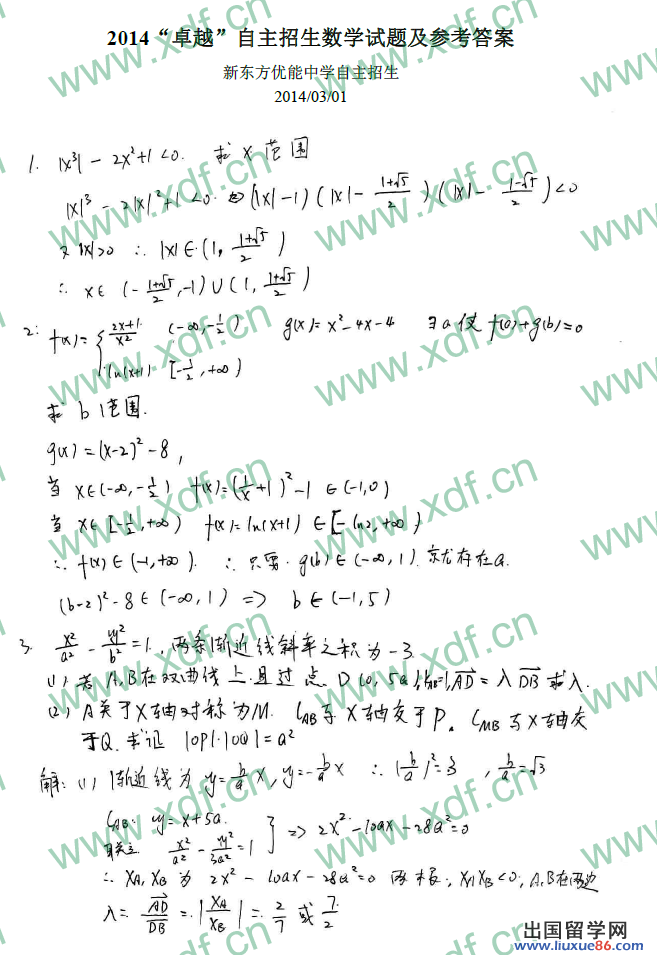 2014“卓越”自主招生数学试题及参考答案
新东方优能中学自主招生
2014/03/01
1. |x³| - 2x²+1<0. 求 x 范围
|x|³ - 2|x|²+1<0 (|x|-1)(|x|- (1+√5)/2)(|x|- (1-√5)/2)<0
又 |x|>0 ∴ |x|∈(1, (1+√5)/2)
∴ x∈(-(1+√5)/2, -1)∪(1, (1+√5)/2)
2: f(x)={ (2x+1)/x² (-∞,-1/2) g(x)=x²-4x-4 ∃a使 f(a)+g(b)=0
ln(x+1) [-1/2,+∞)
求 b 范围.
g(x)=(x-2)²-8,
当 x∈(-∞,-1/2) f(x)=(1/x+1)²-1 ∈(-1,0)
当 x∈[-1/2,+∞) f(x)=ln(x+1)∈[-ln2,+∞)
∴ f(x)∈(-1,+∞). ∴ 只需 g(b)∈(-∞,1).就存在a.
(b-2)²-8∈(-∞,1) => b∈(-1,5)
3. x²/a² - y²/b²=1, 两条渐近线斜率之积为-3
(1) 若A,B在双曲线上.且过点 D(0,5a), kAB=1, AD=λDB 求λ.
(2) A关于X轴对称为M. lAB与X轴交于P. lMB与X轴交
于Q. 求证 |OP|·|OQ|=a²
解: (1) 渐近线为 y=b/a x, y=-b/a x ∴ (b/a)²=3, b/a=√3
lAB: y=x+5a.
联立 x²/a² - y²/3a²=1 } => 2x²-10ax-28a²=0
∴ xA,xB 为 2x²-10ax-28a²=0 两根, xAxB<0, A,B在两边
λ= AD/DB = |xA/xB| = 2/7 或 7/2
www.xdf.cn
出国留学网
www.liuxue86.com